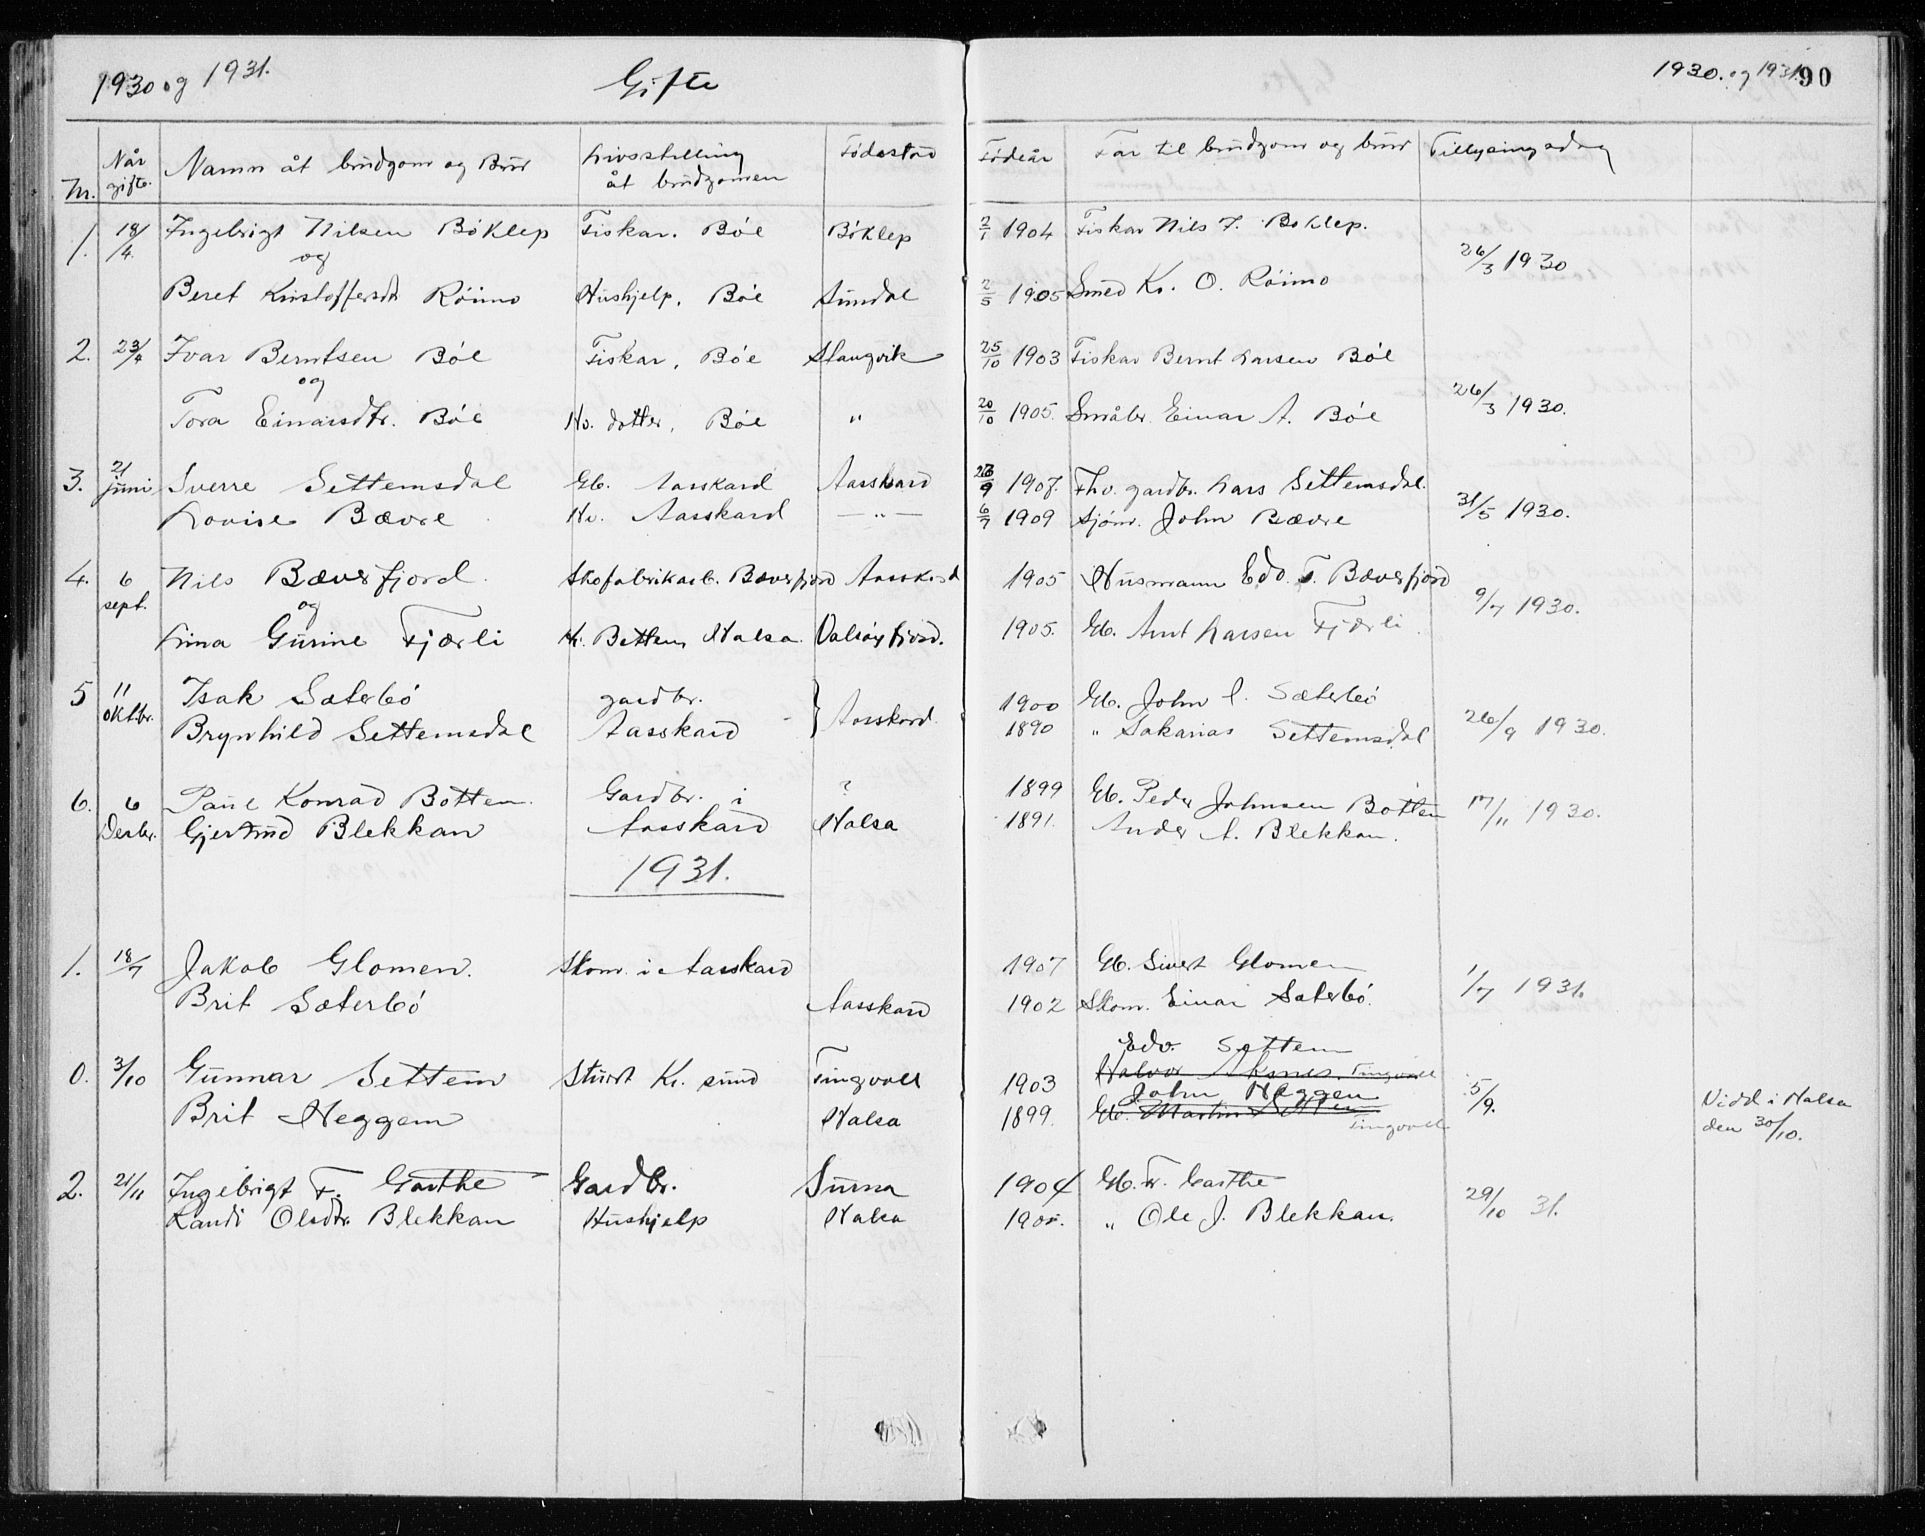 1930 og 1931. Gifte 1930. og 1931. 90
Nr. Når gifte. Namn åt brudgom og Brur Livsstilling åt brudgomen Fødestad Fødeår Far til brudgom og brur Tillysingsdag
1. 18/4. Ingebrigt Nilsen Böklep Fiskar. Böe Böklep 2/1 1904 Fiskar Nils I. Böklep.
og 26/3 1930
Beret Kristoffersdt Röimo Hushjelp, Böe Sundal 2/5 1905 Smed Kr. O. Röimo
2. 23/4 Ivar Berntsen Böe Fiskar, Böe Stangvik 25/10 1903 Fiskar Bernt Larsen Böe
og 26/3 1930.
Tora Einarsdtr. Böe Hv. dotter, Böe " 20/10 1905. Småbr. Einar A. Böe
3. 21 juni Sverre Settemsdal Gb. Aasskard Aasskard 1907. Fhv. gardbr. Lars Settemsdal.
Lovise Bævre Hv. Aasskard — " — 6/7 1909 Sjöm. John Bævre 31/5 1930.
4. 6 sept. Nils Bæverfjord Skofabrikarb. Bæverfjord Aasskard 1905 Husmann Edv. T. Bæverfjord
og 9/7 1930.
Lina Gurine Fjærli Betten, Halsa Valsöyfjord. 1905. Gb. Arnt Larsen Fjærli
5 11 oktbr. Isak Sæterbö gardbr. 1900 Gb. John I. Sæterbö
Brynhild Settemsdal Aasskard Aasskard 1890 " Sakarias Settemsdal 26/9 1930.
6. 6 Desbr. Paul Konrad Botten Gardbr. i ? 1899 Gb. Peder Johnsen Botten 17/11 1930.
Gjertrud Blekkan Aasskard Halsa 1891. Ander A. Blekkan.
1931.
1. 18/7 Jakob Glomen. Skom. i Aasskard 1907 Gb. Sivert Glomen
Brit Sæterbö Aasskard 1902 Skom. Einar Sæterbö. 1/7 1931.
Edv. Settem
0. 3/10 Gunnar Settem Stuert Kr. sund Tingvoll 1903 Halvor Aknes. Tingvoll
John Heggem 5/9.
Brit Heggem Halsa 1899. Gb. Martin Settem Tingvoll Vidd i Halsa den 30/10.
2. 21/11 Ingebrigt F. Garthe Gardbr. Surna 1904 Gb. Fr. Garthe
Randi Olsdtr. Blekkan Hushjelp Halsa " Ole J. Blekkan. 29/10 31.